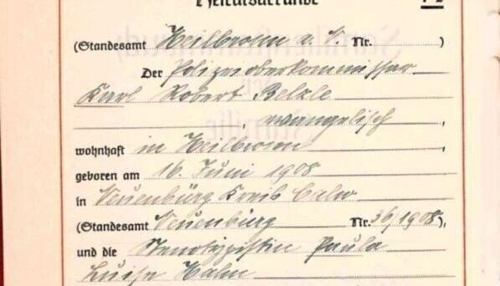 Heiratsurkunde
(Standesamt Heilbronn a. N. Nr. )
Der Polizeioberkommissar
Karl Robert Belzle
, evangelisch ,
wohnhaft in Heilbronn
geboren am 16. Juni 1908
in Neuenbürg Kreis Calw
(Standesamt Neuenbürg Nr. 36/1908),
und die Stenotypistin Paula
Luise Halm